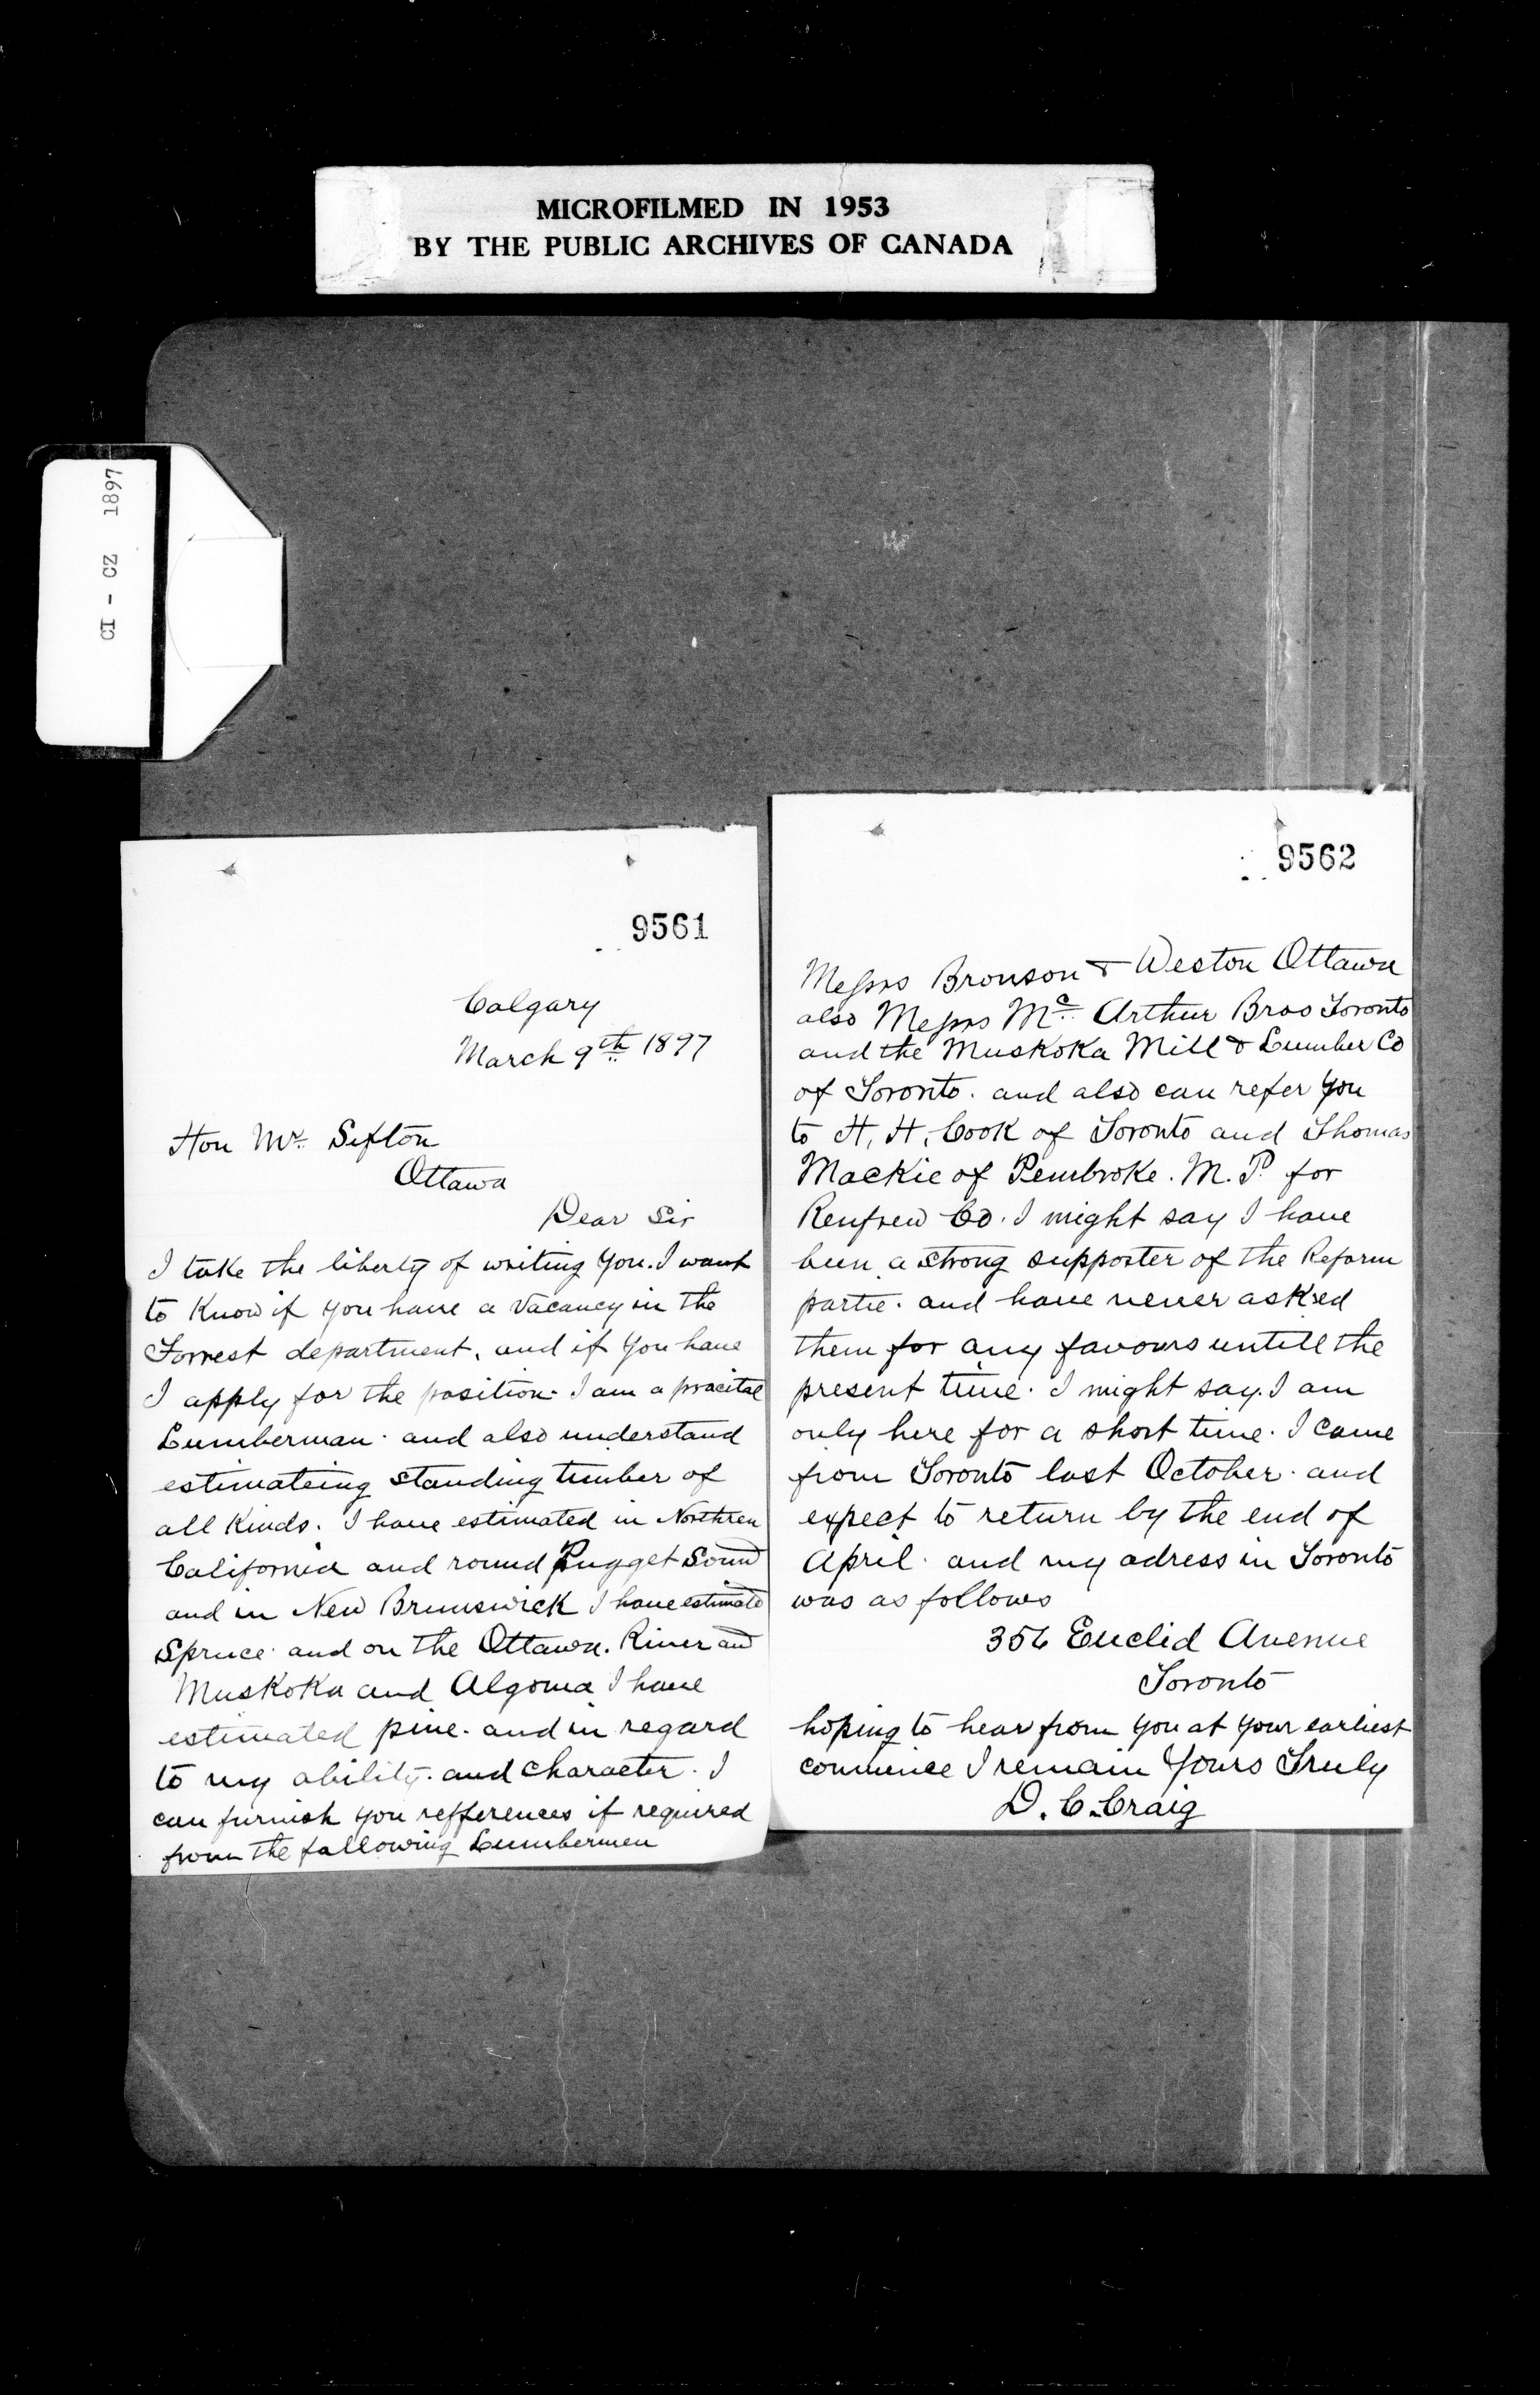 MICROFILMED IN 1953
BY THE PUBLIC ARCHIVES OF CANADA
CI - CZ 1897
9561
Calgary
March 9th 1897
Hon Mr. Sifton
Ottawa
Dear Sir
I take the liberty of writing you. I want
to Know if you have a vacancy in the
Forrest department. and if you have
I apply for the position. I am a pracital
Lumberman. and also understand
estimateing standing timber of
all Kinds. I have estimated in Northren
California and round Pugget Sound
and in New Brunswick I have estimated
Spruce. and on the Ottawa. River and
Muskoka and Algoma I have
estimated pine. and in regard
to my ability. and character. I
can furnish you refferences if required
from the following Lumbermen
9562
Messrs Bronson & Weston Ottawa
also Messrs Mc Arthur Bros Toronto
and the Muskoka Mill & Lumber Co
of Toronto. and also can refer you
to H. H. Cook of Toronto and Thomas
Mackie of Pembroke. M. P. for
Renfrew Co. I might say I have
been a strong supporter of the Reform
partie. and have never asked
them for any favours untill the
present time. I might say. I am
only here for a short time. I came
from Toronto last October. and
expect to return by the end of
April. and my adress in Toronto
was as follows
356 Euclid Avenue
Toronto
hoping to hear from you at your earliest
convinence I remain Yours Truly
D. C. Craig